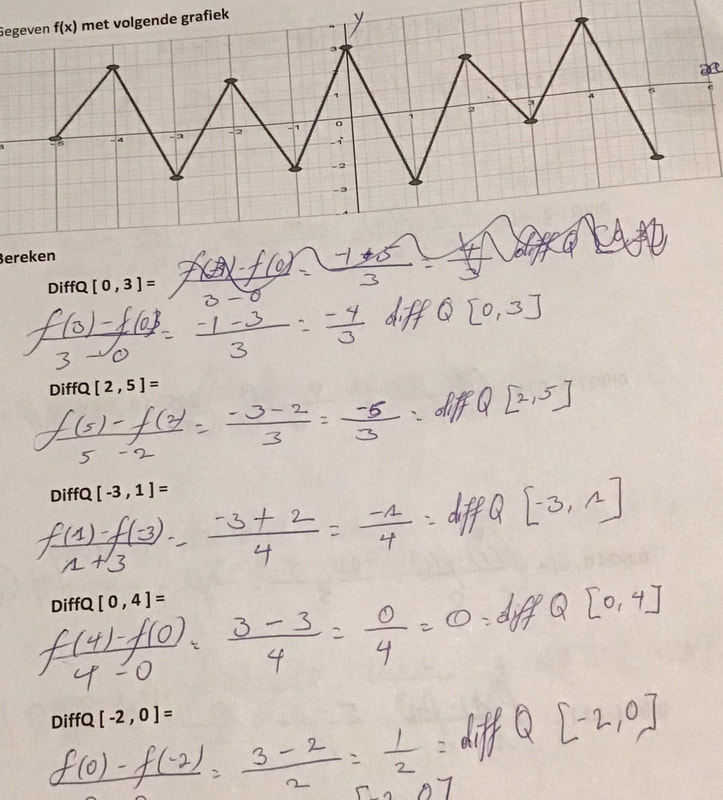 Gegeven f(x) met volgende grafiek
y
3
1
-5 -4 -3 -2 -1 0 1 2 3 4 5 6
-1
-2
-3
-4
Bereken
DiffQ [ 0 , 3 ] = f(3)-f(0) / 3-0 = / 3 = 4/3 diff Q
f(3)-f(0) / 3-0 = -1-3 / 3 = -4/3 diff Q [0,3]
DiffQ [ 2 , 5 ] =
f(5)-f(2) / 5-2 = -3-2 / 3 = -5/3 = diff Q [2,5]
DiffQ [ -3 , 1 ] =
f(1)-f(-3) / 1+3 = -3+2 / 4 = -1/4 = diff Q [-3, 1]
DiffQ [ 0 , 4 ] =
f(4)-f(0) / 4-0 = 3-3 / 4 = 0/4 = 0 = diff Q [0,4]
DiffQ [ -2 , 0 ] =
f(0)-f(-2) = 3-2 / 2 = 1/2 = diff Q [-2,0]
[-2,0]